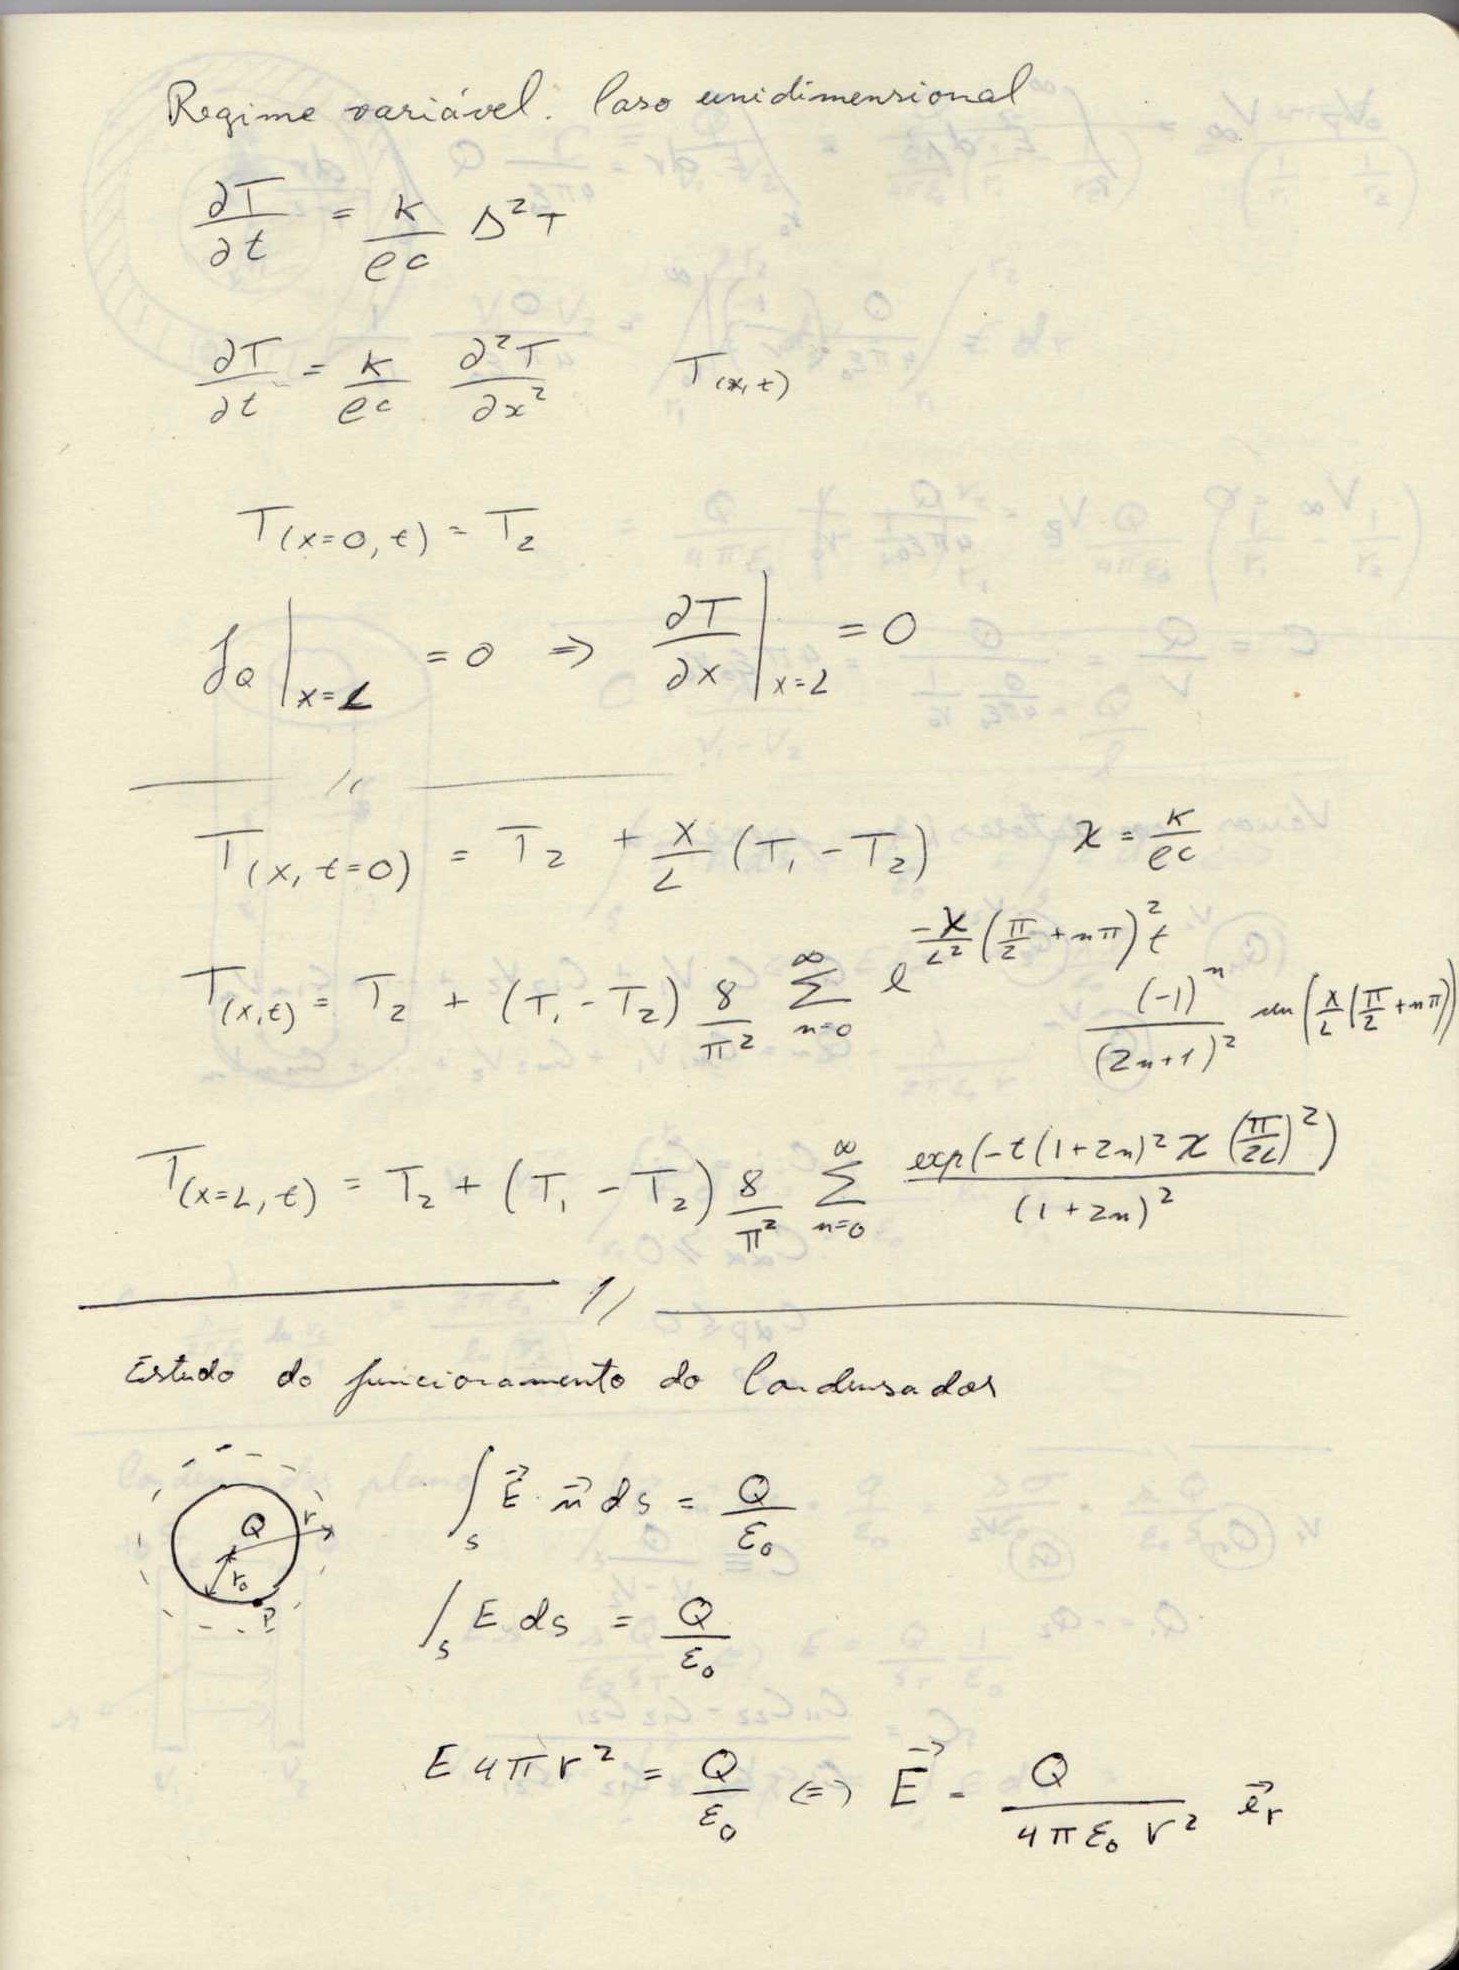 Regime variável. Caso unidimensional
∂T/∂t = K/ρc Δ²T
∂T/∂t = K/ρc ∂²T/∂x² T(x,t)
T(x=0,t) = T₂
J_Q|x=L = 0 ⇒ ∂T/∂x|x=L = 0
//
T(x,t=0) = T₂ + x/L (T₁ - T₂) χ = K/ρc
T(x,t) = T₂ + (T₁ - T₂) 8/π² ∑_{n=0}^{∞} e^{-χ/L² (π/2 + nπ)² t} (-1)ⁿ/(2n+1)² sen(x/L (π/2 + nπ))
T(x=L,t) = T₂ + (T₁ - T₂) 8/π² ∑_{n=0}^{∞} exp(-t(1+2n)² χ (π/2L)²)/(1+2n)²
//
Estudo do funcionamento do Condensador
Q r r₀ P
∫_S E⃗ · n⃗ ds = Q/ε₀
∫_S E ds = Q/ε₀
E 4πr² = Q/ε₀ ⇔ E⃗ = Q/4πε₀r² e⃗_r